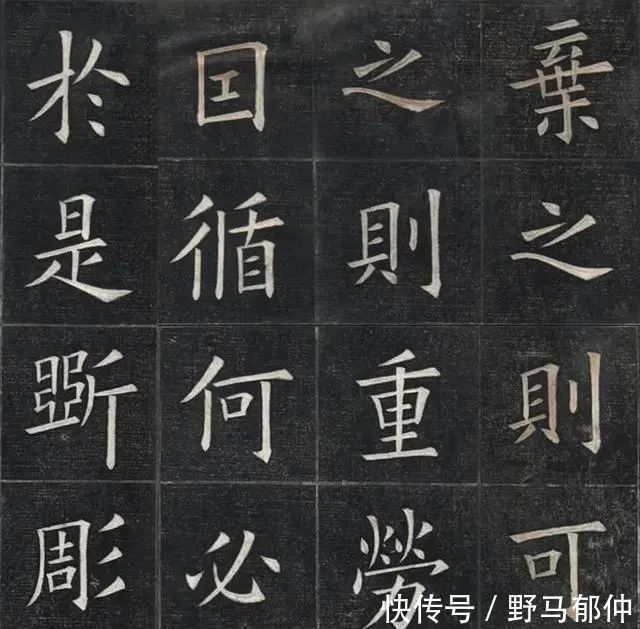 棄之則可
之則重勞
囙循何必
於是斵彫
快传号 / 野马郁仲